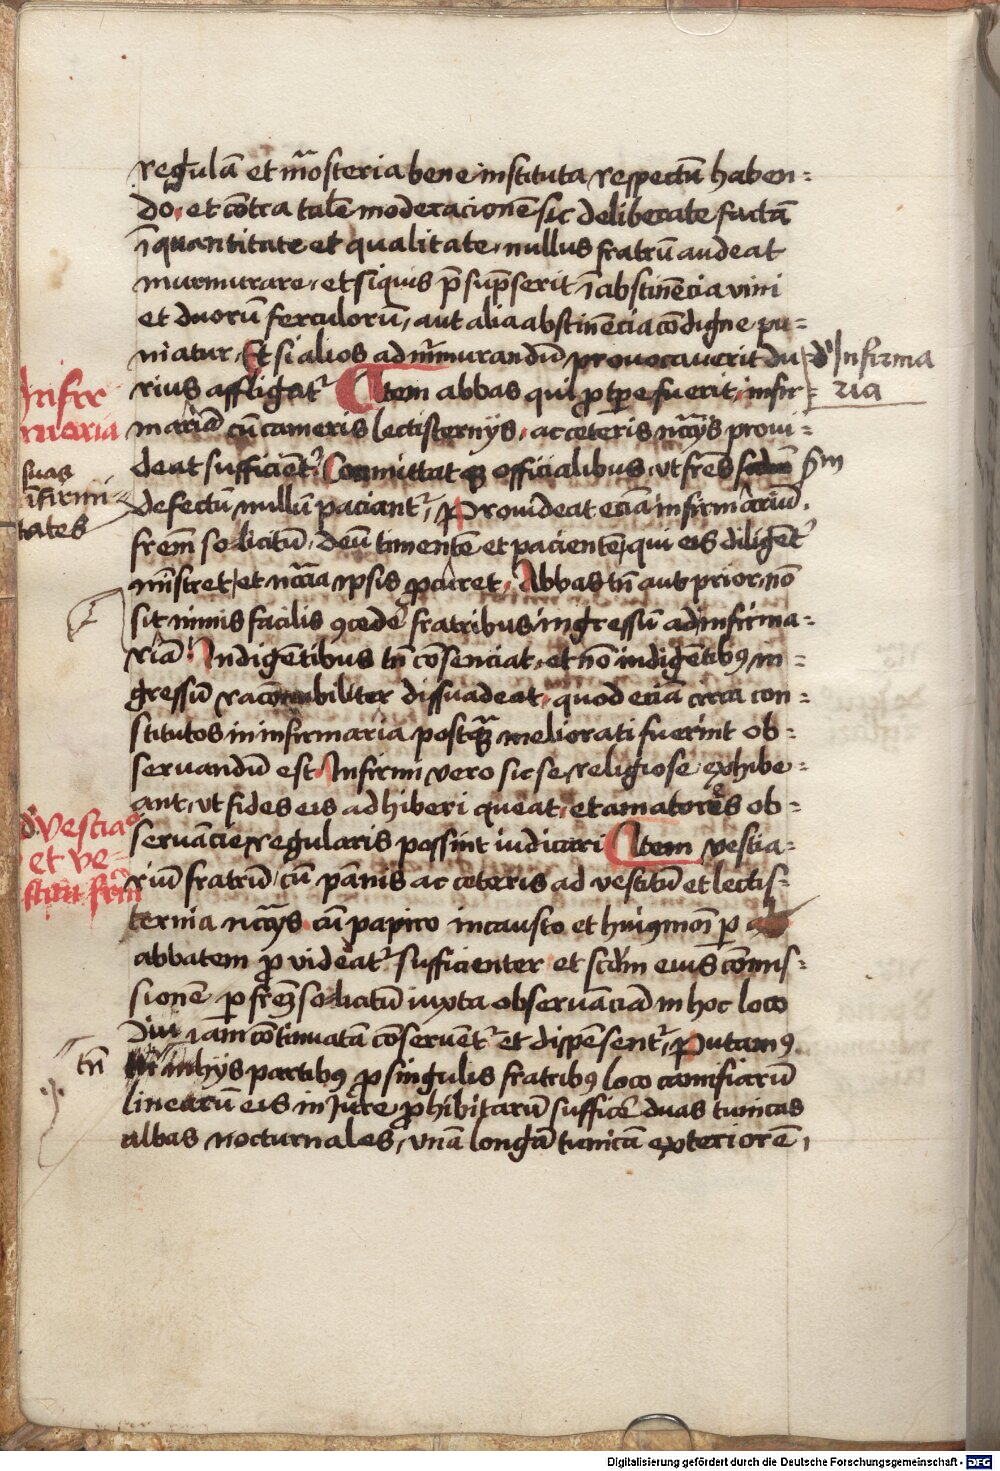 regulā et mōsteria bene instituta respectū haben=
do. et cōtra talē moderacionē sic deliberate factā
ī quantitate et qualitate, nullus fratrū audeat
murmurare, et siquis p̄sūpserit ī abstinēcia vini
et duorū ferculorū, aut alia abstinēcia cōdigne pu=
niatur, Et si alios ad murmurandū provocaverit du=
rius affligat᷑ Item abbas qui p̱ tpe fuerit, infir=
mariā cū cameris lectisternijs, ac ceteris nccijs provi=
deat sufficient᷑. Committat officialibus, ut frēs
defectū nullū paciant᷑, Provideat eciā infirmariū,
frem solicitū, deū timentē et pacientē, qui eis diligent᷑
mīstret, et nccīa ipsis ꝓcuret, Abbas tn̄ aut prior, nō
sit nimis facilis ꝯcedē fratribus ingressū ad infirma=
riā. Indigētibus tn̄ cōsenciat, et nō indigētibꝰ in=
gressū racōnabiliter dissuadeat, quod eciā circa con=
stitutos in infirmaria postq̄ meliorati fuerint ob=
servandū est. Infirmi vero sic se religiose exhibe=
ant, ut fides eis adhiberi queat, et amatores ob=
servācie regularis possint iudicari Item vestia=
riū fratrū, cū pānis ac ceteris ad vestitū et lectis=
ternia nccijs cū papiro incausto et huiꝰmōi p̱
abbatem ꝓvideat᷑ sufficienter et scdm eius cōmis=
sionē p̱ frem solicitū iuxta observāciā in hoc loco
diu iam cōtinuatā cōservēt᷑ et dispēsent᷑, Putamꝰ
in hijs partibꝰ ꝓ singulis fratribꝰ loco camisiarū
linearū eis in iure ꝓhibitarū sufficē duas tunicas
albas nocturnales, unā longā tunicā exteriorē,
Infir
maria
suas
īfirmi=
tates
d' Infirma
ria
d' Vestia°
et ve=
tn̄
Digitalisierung gefördert durch die Deutsche Forschungsgemeinschaft - DFG